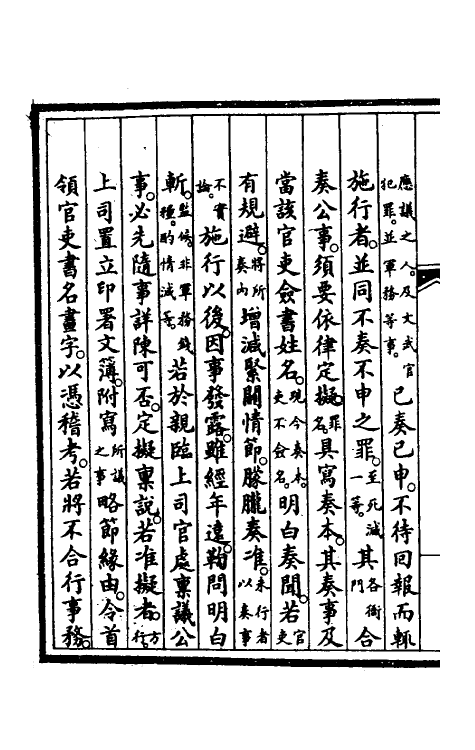 應議之人及文武官犯罪。並軍務等事。已奏已申。不待回報而輒
施行者。並同不奏不申之罪。至死減一等。其各衙門合
奏公事。須要依律定擬。罪名。具寫奏本。其奏事及
當該官吏僉書姓名。現今奏本。吏不僉名。明白奏聞。若官吏
有規避。將所奏內增減緊關情節。朦朧奏准。未行者以奏事
不實論。施行以後。因事發露。雖經年遠。鞫問明白
斬。監候。非軍務錢糧。酌情減等。若於親臨上司官處稟議公
事。必先隨事詳陳可否。定擬稟說。若准擬者。方行。
上司置立印署文簿。附寫所議之事略節緣由。令首
領官吏書名畫字。以憑稽考。若將不合行事務。